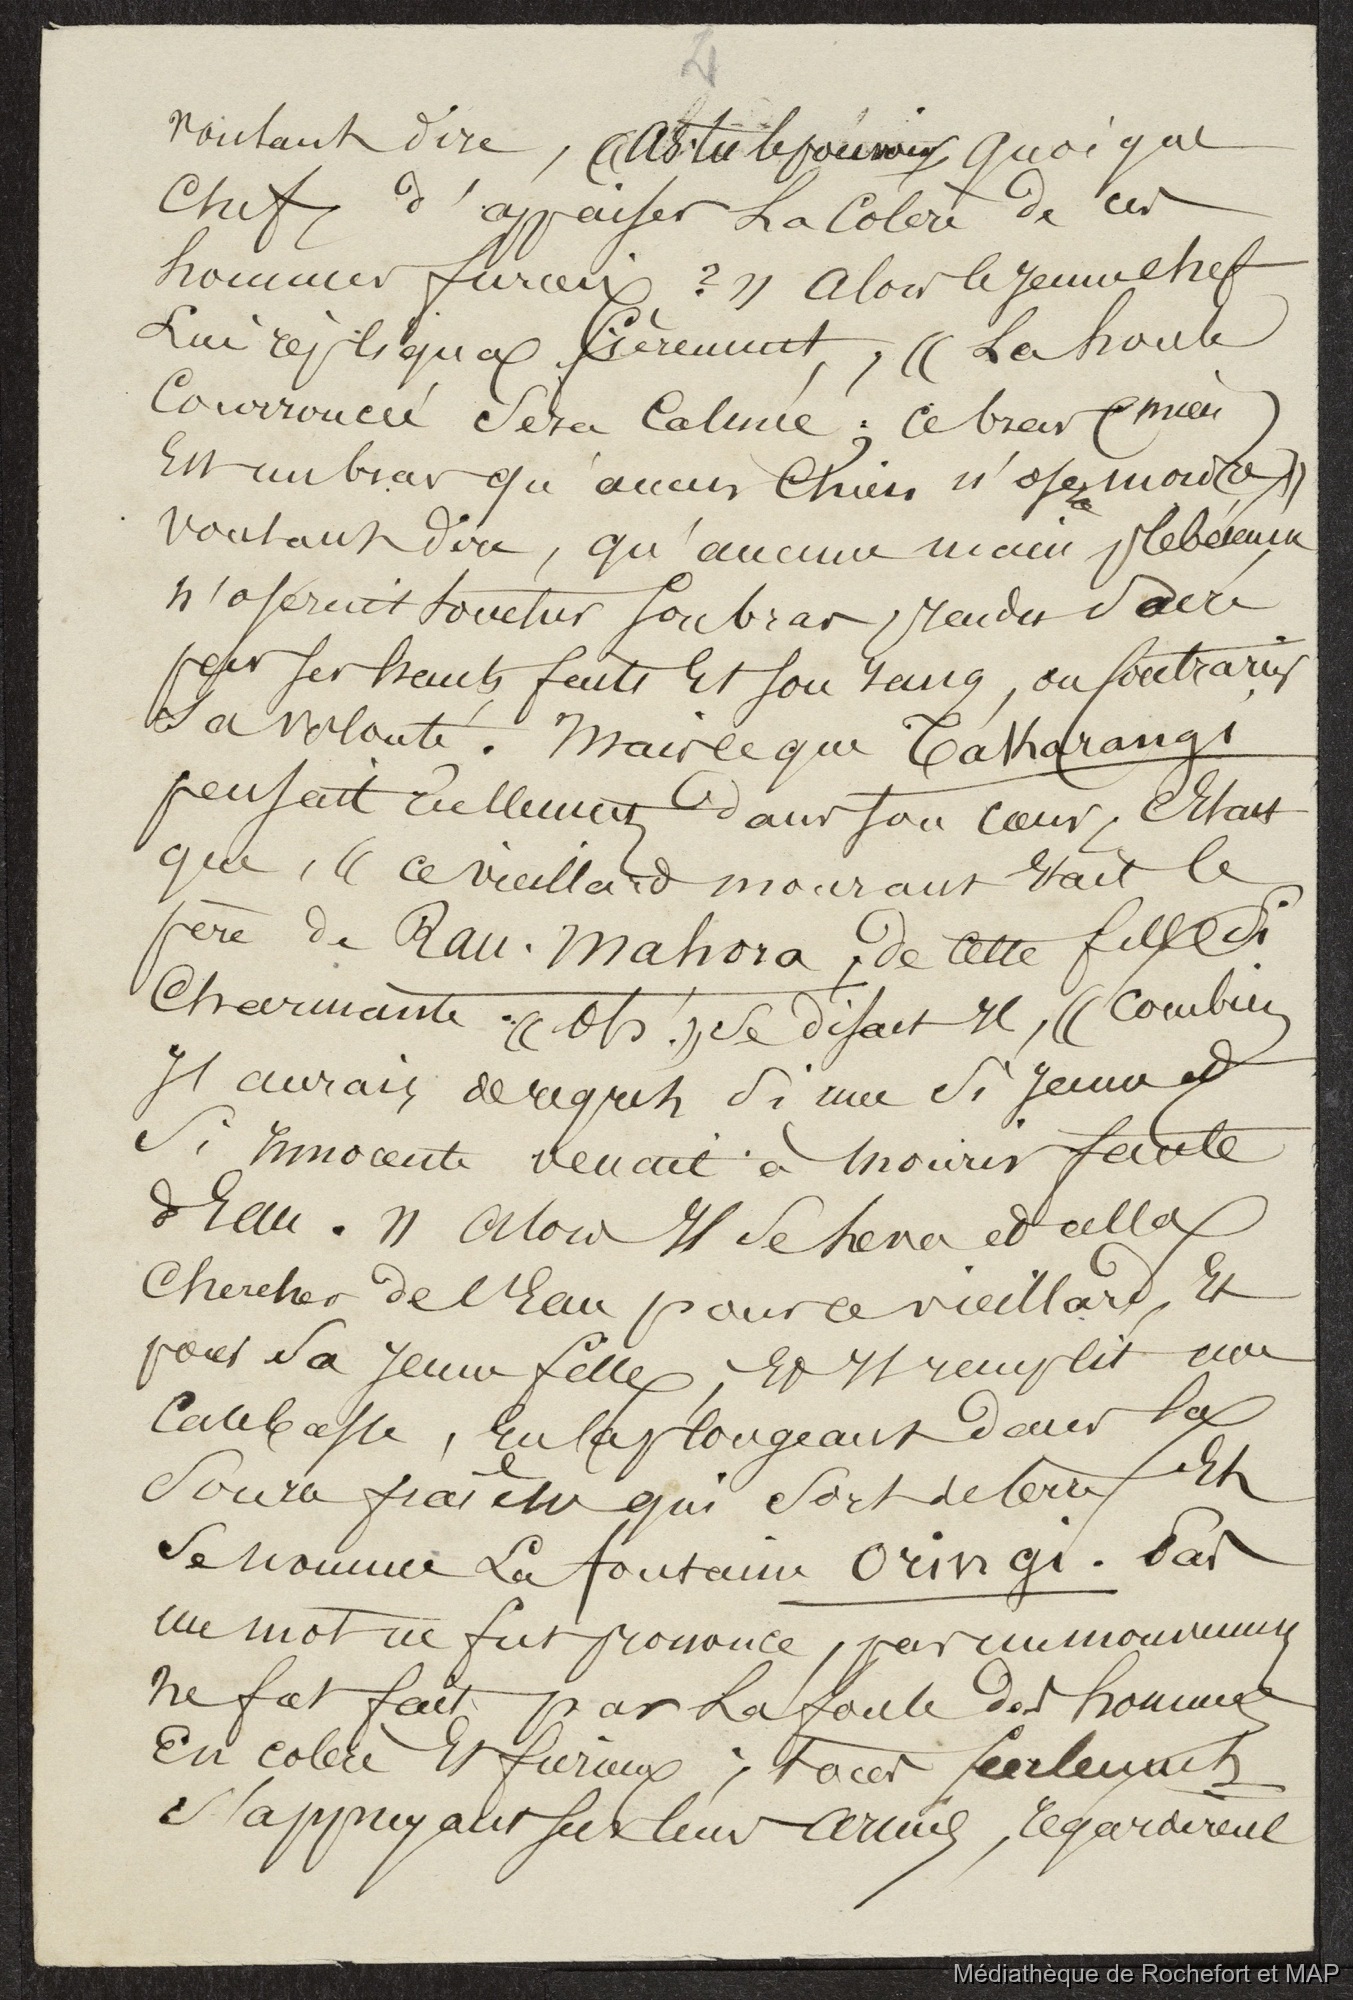 4
voulant dire, « as tu le pouvoir, quoique
Chef, d'appaiser La Colère de ces
hommes furieux ? » alors le jeune chef
Lui répliqua fièrement, « La houle
Courroucée Sera Calmée ; ce bras (mien)
Est un bras qu'aucun Chien n'osera mordre »
voulant dire, qu'aucune main plébéienne
n'oserait toucher son bras rendu Sacré
par ses hauts faits Et son rang, ou contrarier
Sa volonté. Mais ce que Takarangi
pensait réellement dans son cœur, c'Etait
que, « ce vieillard mourant Etait le
père de Rau. Mahora, de cette fille Si
Charmante. « Oh ! » Se disait Il, « Combien
J'aurais de regrets Si une Si Jeune et
Si Innocente venait à mourir faute
d'Eau. » Alors Il Se leva et alla
Chercher de l'Eau pour ce vieillard, Et
pour Sa Jeune fille, Et Il remplit une
Calebasse, En la plongeant dans la
Source fraîche qui Sort de terre Et
Se nomme La fontaine Oringi. Pas
un mot ne fut prononcé, pas un mouvement
ne fut fait par La foule des hommes
En colère Et furieux ; tous seulement
S'appuyant sur leurs Armes, regardèrent
Médiathèque de Rochefort et MAP